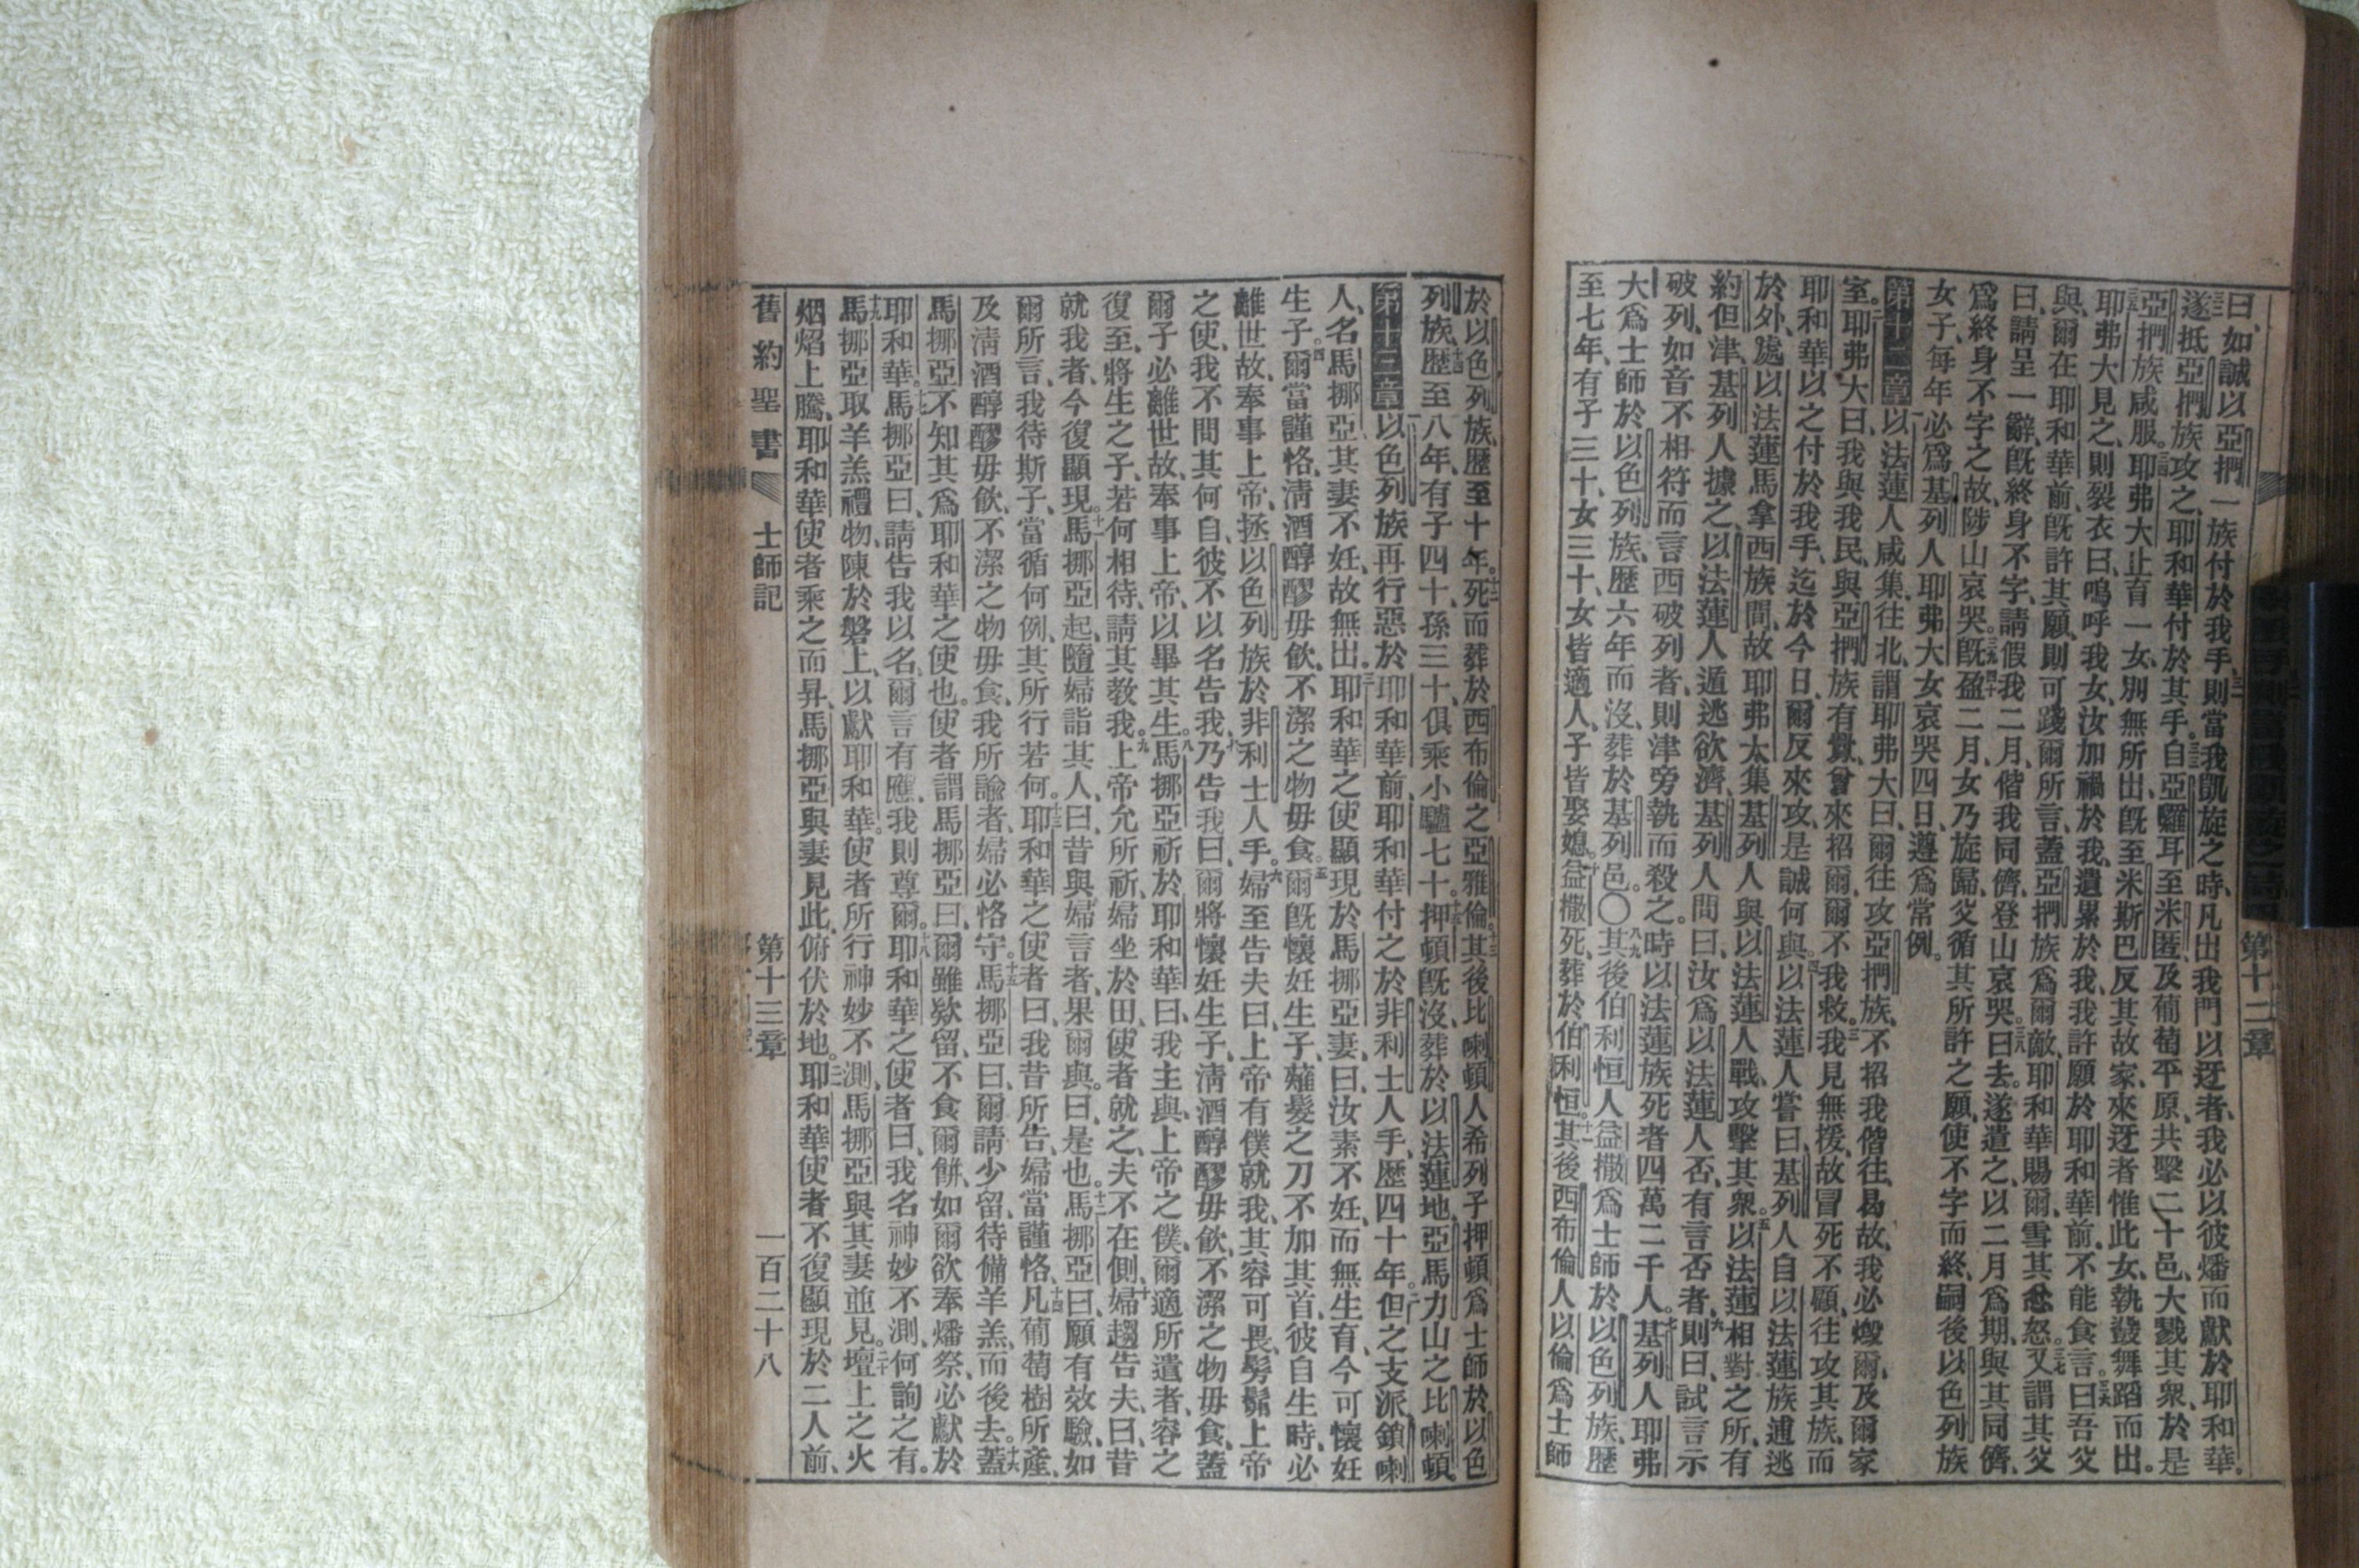 曰、如誠以亞捫一族付於我手、三十一則當我凱旋之時、凡出我門以迓者、我必以彼燔而獻於耶和華。
三十二遂抵亞捫族攻之、耶和華付於其手。三十三自亞囉耳至米匿、及葡萄平原、共擊二十邑、大戮其衆、於是
亞捫族咸服。三十四耶弗大止育一女、別無所出、旣至米斯巴、反其故家、來迓者惟此女、執鼗舞蹈而出。
三十五耶弗大見之、則裂衣曰、嗚呼我女、汝加禍於我、遺累於我、我許願於耶和華前、不能食言。三十六曰、吾父
與、爾在耶和華前、旣許其願、則可踐爾所言、蓋亞捫族爲爾敵、耶和華賜爾雪其忿怒。三十七又謂其父
曰、請呈一辭、旣終身不字、請假我二月、偕我同儕、登山哀哭。三十八曰、去。遂遣之、以二月爲期、與其同儕、
爲終身不字之故、陟山哀哭。三十九旣盈二月、女乃旋歸、父循其所許之願、使不字而終、嗣後以色列族
女子、四十每年必爲基列人耶弗大女哀哭四日、遵爲常例。
第十二章 一以法蓮人咸集、往北、謂耶弗大曰、爾往攻亞捫族、不招我偕往、曷故、我必燬爾、及爾家
室。二耶弗大曰、我與我民、與亞捫族有釁、曾來招爾、爾不我救。三我見無援、故冒死不顧、往攻其族、而
耶和華以之付於我手、迄於今日、爾反來攻、是誠何與。四以法蓮人嘗曰、基列人自以法蓮族逋逃
於外、處以法蓮馬拿西族間、故耶弗大集基列人與以法蓮人戰、攻擊其衆。五以法蓮相對之所、有
約但津、基列人據之、以法蓮人遁逃欲濟、基列人問曰、汝爲以法蓮人否、有言否者、六則曰、試言示
破列、如音不相符而言西破列者、則津旁執而殺之。時以法蓮族死者四萬二千人。七基列人耶弗
大爲士師於以色列族、歷六年而沒、葬於基列邑。〇八九其後伯利恒人益撒爲士師於以色列族、歷
至七年、有子三十、女三十、女皆適人、子皆娶媳。十益撒死、葬於伯利恒。十一其後西布倫人以倫爲士師
第十二章
於以色列族、歷至十年。十二死而葬於西布倫之亞雅倫。十三其後比喇頓人希列子押頓爲士師於以色
列族、十四歷至八年、有子四十、孫三十、俱乘小驢七十。十五押頓旣沒、葬於以法蓮地、亞馬力山之比喇頓。
第十三章 一以色列族再行惡於耶和華前、耶和華付之於非利士人手、歷四十年。二但之支派、鎖喇
人、名馬挪亞、其妻不妊、故無出。三耶和華之使顯現於馬挪亞妻、曰、汝素不妊、而無生育、今可懷妊
生子。四爾當謹恪、淸酒醇醪毋飲、不潔之物毋食。五爾旣懷妊生子、薙髮之刀不加其首、彼自生時、必
離世故、奉事上帝、拯以色列族於非利士人手。六婦至告夫曰、上帝有僕就我、其容可畏、髣髴上帝
之使、我不問其何自、彼不以名告我、七乃告我曰、爾將懷妊生子、淸酒醇醪毋飲、不潔之物毋食、蓋
爾子必離世故、奉事上帝、以畢其生。八馬挪亞祈於耶和華曰、我主與、上帝之僕、爾適所遣者、容之
復至、將生之子、若何相待、請其敎我。九上帝允所祈、婦坐於田、使者就之、夫不在側、十婦趨告夫、曰、昔
就我者、今復顯現。十一馬挪亞起、隨婦詣其人曰、昔與婦言者、果爾與。曰、是也。十二馬挪亞曰、願有效驗、如
爾所言、我待斯子、當循何例、其所行若何。十三耶和華之使者曰、我昔所告、婦當謹恪、十四凡葡萄樹所產、
及淸酒醇醪毋飲、不潔之物毋食、我所諭者、婦必恪守。十五馬挪亞曰、爾請少留、待備羊羔、而後去。十六蓋
馬挪亞不知其爲耶和華之使也。使者謂馬挪亞曰、爾雖欵留、不食爾餅、如爾欲奉燔祭、必獻於
耶和華。十七馬挪亞曰、請告我以名、爾言有應、我則尊爾。十八耶和華之使者曰、我名神妙不測、何詢之有。
十九馬挪亞取羊羔禮物、陳於磐上、以獻耶和華。使者所行神妙不測、馬挪亞與其妻並見。二十壇上之火
烟熖上騰、耶和華使者乘之而昇、馬挪亞與妻見此、俯伏於地。二一耶和華使者不復顯現於二人前、
舊約聖書 士師記 第十三章 一百二十八